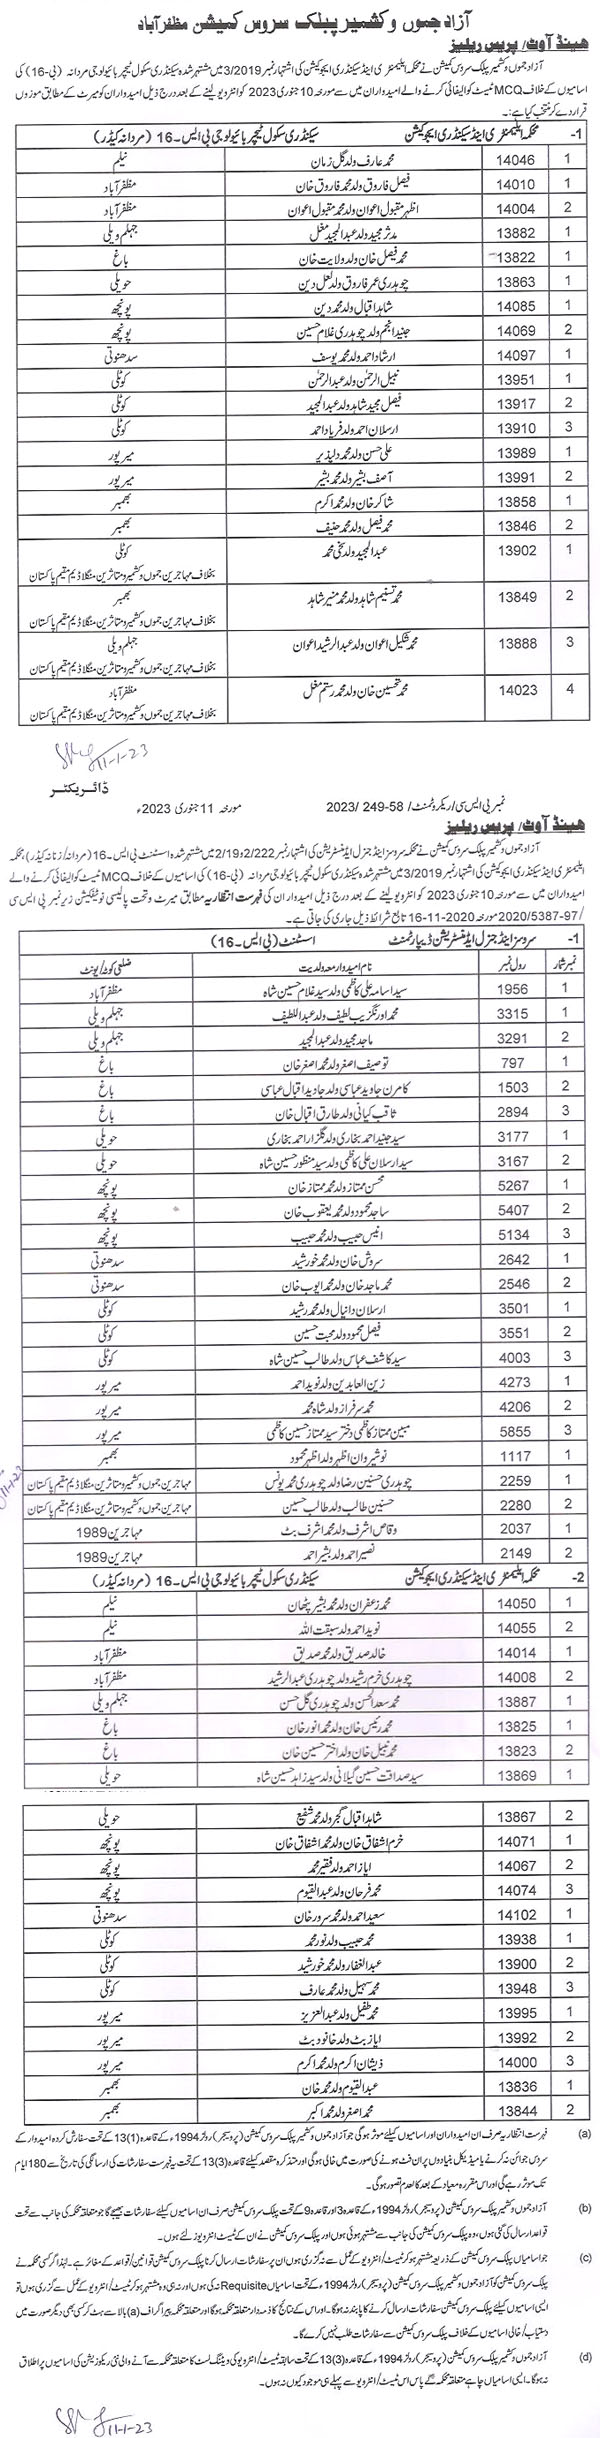 آزاد جموں و کشمیر پبلک سروس کمیشن مظفرآباد
ھینڈ آوٹ/ پریس ریلیز
آزاد جموں و کشمیر پبلک سروس کمیشن نے محکمہ ایلیمنٹری اینڈ سیکنڈری ایجوکیشن کی اشتہار نمبر 3/2019 میں مشتہر شدہ سیکنڈری سکول ٹیچر بائیولوجی مردانہ (بی-16) کی
اسامیوں کے خلاف MCQ ٹیسٹ کوالیفائی کرنے والے امیدواران میں سے مورخہ 10 جنوری 2023 کو انٹرویو لینے کے بعد درج ذیل امیدواران کو میرٹ کے مطابق موزوں
قرار دے کر منتخب کیا ہے:۔
1- محکمہ ایلیمنٹری اینڈ سیکنڈری ایجوکیشن سیکنڈری سکول ٹیچر بائیولوجی بی ایس۔16 (مردانہ کیڈر)
1 14046 محمد عارف ولد گل زمان نیلم
1 14010 فیصل فاروق ولد محمد فاروق خان مظفرآباد
2 14004 اظہر مقبول اعوان ولد محمد مقبول اعوان مظفرآباد
1 13882 مدثر مجید ولد عبدالمجید مغل جہلم ویلی
1 13822 محمد فیصل خان ولد ولایت خان باغ
1 13863 چوہدری عمر فاروق ولد لعل دین حویلی
1 14085 شاہد اقبال ولد محمد دین پونچھ
2 14069 جنید انجم ولد چوہدری غلام حسین پونچھ
1 14097 ارشاد احمد ولد محمد یوسف سدھنوتی
1 13951 نبیل الرحمٰن ولد عبدالرحمٰن کوٹلی
2 13917 فیصل مجید شاہد ولد عبدالمجید کوٹلی
3 13910 ارسلان احمد ولد فریاد احمد کوٹلی
1 13989 علی حسن ولد محمد دلپذیر میرپور
2 13991 آصف بشیر ولد محمد بشیر میرپور
1 13858 شاکر خان ولد محمد اکرم بھمبر
2 13846 محمد فیصل ولد محمد حنیف بھمبر
1 13902 عبدالمجید ولد سخی محمد کوٹلی
بخلاف مہاجرین جموں و کشمیر و متاثرین منگلا ڈیم مقیم پاکستان
2 13849 محمد تسنیم شاہد ولد محمد منیر شاہد بھمبر
بخلاف مہاجرین جموں و کشمیر و متاثرین منگلا ڈیم مقیم پاکستان
3 13888 محمد شکیل اعوان ولد عبدالرشید اعوان جہلم ویلی
بخلاف مہاجرین جموں و کشمیر و متاثرین منگلا ڈیم مقیم پاکستان
4 14023 محمد تحسین خان ولد محمد رستم مغل مظفرآباد
بخلاف مہاجرین جموں و کشمیر و متاثرین منگلا ڈیم مقیم پاکستان
11-1-23
ڈائریکٹر
نمبر پی ایس سی/ ریکروٹمنٹ/ 2023/ 249-58 مورخہ 11 جنوری 2023ء
ھینڈ آوٹ/ پریس ریلیز
آزاد جموں و کشمیر پبلک سروس کمیشن نے محکمہ سروسز اینڈ جنرل ایڈمنسٹریشن کی اشتہار نمبر 2/222 و 2/19 میں مشتہر شدہ اسسٹنٹ بی ایس۔16 (مردانہ/ زنانہ کیڈر)، محکمہ
ایلیمنٹری اینڈ سیکنڈری ایجوکیشن کی اشتہار نمبر 3/2019 میں مشتہر شدہ سیکنڈری سکول ٹیچر بائیولوجی مردانہ (بی-16) کی اسامیوں کے خلاف MCQ ٹیسٹ کوالیفائی کرنے والے
امیدواران میں سے مورخہ 10 جنوری 2023 کو انٹرویو لینے کے بعد درج ذیل امیدواران کی فہرست انتظاریہ مطابق میرٹ و تحت پالیسی نوٹیفکیشن زیر نمبر پی ایس سی
/2020/5387-97 مورخہ 2020-11-16 تابع شرائط ذیل جاری کی جاتی ہے۔
1- سروسز اینڈ جنرل ایڈمنسٹریشن ڈیپارٹمنٹ اسسٹنٹ (بی ایس۔16)
نمبر شمار رول نمبر نام امیدوار معہ ولدیت ضلعی کوٹہ/ یونٹ
1 1956 سید اسامہ علی کاظمی ولد سید غلام حسین شاہ مظفرآباد
1 3315 محمد اورنگزیب لطیف ولد عبداللطیف جہلم ویلی
2 3291 ماجد مجید ولد عبدالمجید جہلم ویلی
1 797 توصیف اصغر ولد محمد اصغر خان باغ
2 1503 کامرن جاوید عباسی ولد جاوید اقبال عباسی باغ
3 2894 ثاقب کیانی ولد طارق اقبال خان باغ
1 3177 سید جنید احمد بخاری ولد گلزار احمد بخاری حویلی
2 3167 سید ارسلان علی کاظمی ولد سید منظور حسین شاہ حویلی
1 5267 محسن ممتاز ولد محمد ممتاز خان پونچھ
2 5407 ساجد محمود ولد محمد یعقوب خان پونچھ
3 5134 انیس حبیب ولد محمد حبیب پونچھ
1 2642 سروش خان ولد محمد خورشید سدھنوتی
2 2546 محمد ماجد خان ولد محمد ایوب خان سدھنوتی
1 3501 ارسلان دانیال ولد محمد رشید کوٹلی
2 3551 فیصل محمود ولد محبت حسین کوٹلی
3 4003 سید کاشف عباس ولد طالب حسین شاہ کوٹلی
1 4273 زین العابدین ولد نوید احمد میرپور
2 4206 محمد سرفراز ولد شاہ محمد میرپور
3 5855 مبین ممتاز کاظمی دختر سید ممتاز حسین کاظمی میرپور
1 1117 نوشیروان اظہر ولد اظہر محمود بھمبر
1 2259 چوہدری حسنین رضا ولد چوہدری محمد یونس مہاجرین جموں و کشمیر و متاثرین منگلا ڈیم مقیم پاکستان
2 2280 حسنین طالب ولد طالب حسین مہاجرین جموں و کشمیر و متاثرین منگلا ڈیم مقیم پاکستان
1 2037 وقاص اشرف ولد محمد اشرف بٹ مہاجرین 1989
2 2149 نصیر احمد ولد بشیر احمد مہاجرین 1989
2- محکمہ ایلیمنٹری اینڈ سیکنڈری ایجوکیشن سیکنڈری سکول ٹیچر بائیولوجی بی ایس۔16 (مردانہ کیڈر)
1 14050 محمد زعفران ولد محمد بشیر پٹھان نیلم
2 14055 نوید احمد ولد سبقت اللہ نیلم
1 14014 خالد صدیق ولد محمد صدیق مظفرآباد
2 14008 چوہدری خرم رشید ولد چوہدری عبدالرشید مظفرآباد
1 13887 محمد سعد الحسن ولد چوہدری گل حسن جہلم ویلی
1 13825 محمد رئیس خان ولد محمد انور خان باغ
2 13823 محمد نبیل خان ولد اختر حسین خان باغ
1 13869 سید صداقت حسین گیلانی ولد سید زاہد حسین شاہ حویلی
2 13867 شاہد اقبال گجر ولد محمد شفیع حویلی
1 14071 خرم اشفاق خان ولد محمد اشفاق خان پونچھ
2 14067 ایاز احمد ولد فقیر محمد پونچھ
3 14074 محمد فرحان ولد عبدالقیوم پونچھ
1 14102 سعید احمد ولد محمد سرور خان سدھنوتی
1 13938 محمد حبیب ولد نور محمد کوٹلی
2 13900 عبدالغفار ولد محمد خورشید کوٹلی
3 13948 محمد سہیل ولد محمد عارف کوٹلی
1 13995 محمد طفیل ولد عبدالعزیز میرپور
2 13992 ایاز بٹ ولد خانود بٹ میرپور
3 14000 ذیشان اکرم ولد محمد اکرم میرپور
1 13836 عبدالقیوم ولد محمد خان بھمبر
2 13844 محمد اصغر ولد محمد اکبر بھمبر
(a) فہرست انتظاریہ صرف ان امیدواران اور اسامیوں کیلئے موثر ہوگی جو آزاد جموں و کشمیر پبلک سروس کمیشن (پروسیجر) رولز 1994ء کے قاعدہ (1)13 کے تحت سفارش کردہ امیدوار کے
سروس جوائن نہ کرنے یا میڈیکل بنیادوں پر ان فٹ ہونے کی صورت میں خالی ہوگی اور متذکرہ مقصد کیلئے قاعدہ (3)13 کے تحت یہ فہرست سفارشات کی ارسالگی کی تاریخ سے 180 ایام
تک موثر رہے گی اور اس مقررہ میعاد کے بعد کالعدم تصور ہوگی۔
(b) آزاد جموں و کشمیر پبلک سروس کمیشن (پروسیجر) رولز 1994ء کے قاعدہ 3 اور قاعدہ 9 کے تحت پبلک سروس کمیشن صرف ان اسامیوں کیلئے سفارشات بھیجے گا جو متعلقہ محکمہ کی جانب سے تحت
قواعد ارسال کی گئی ہوں، وہ پبلک سروس کمیشن کی جانب سے مشتہر ہوئی ہوں اور پبلک سروس کمیشن نے ان کے ٹیسٹ انٹرویوز لئے ہوں۔
(c) جو اسامیاں پبلک سروس کمیشن کے ذریعہ مشتہر ہو کر ٹیسٹ/ انٹرویو کے عمل سے نہ گزری ہوں ان پر سفارشات ارسال کرنا پبلک سروس کمیشن قوانین/ قواعد کے مغائر ہے۔ لہذا اگر کسی محکمہ نے
پبلک سروس کمیشن کو آزاد جموں و کشمیر پبلک سروس کمیشن (پروسیجر) رولز 1994ء کے تحت اسامیاں Requisite نہ کی ہوں اور نہ ہی وہ مشتہر ہو کر ٹیسٹ/ انٹرویو کے عمل سے گزری ہوں تو
ایسی اسامیوں کیلئے پبلک سروس کمیشن سفارشات ارسال کرنے کا پابند نہ ہوگا۔ اور اس کے نتائج کا ذمہ دار متعلقہ محکمہ ہوگا اور متعلقہ محکمہ پیراگراف (a) بالا سے ہٹ کر کسی بھی دیگر صورت میں
دستیاب/ خالی اسامیوں کے خلاف پبلک سروس کمیشن سے سفارشات طلب نہیں کرے گا۔
(d) آزاد جموں و کشمیر پبلک سروس کمیشن (پروسیجر) رولز 1994ء کے قاعدہ (3)13 کے تحت سابقہ ٹیسٹ/ انٹرویو کی ویٹنگ لسٹ کا متعلقہ محکمہ سے آنے والی نئی ریکوزیشن کی اسامیوں پر اطلاق
نہ ہوگا۔ ایسی اسامیاں چاہے متعلقہ محکمہ کے پاس اس ٹیسٹ/ انٹرویو سے پہلے ہی موجود کیوں نہ ہوں۔
11-1-23